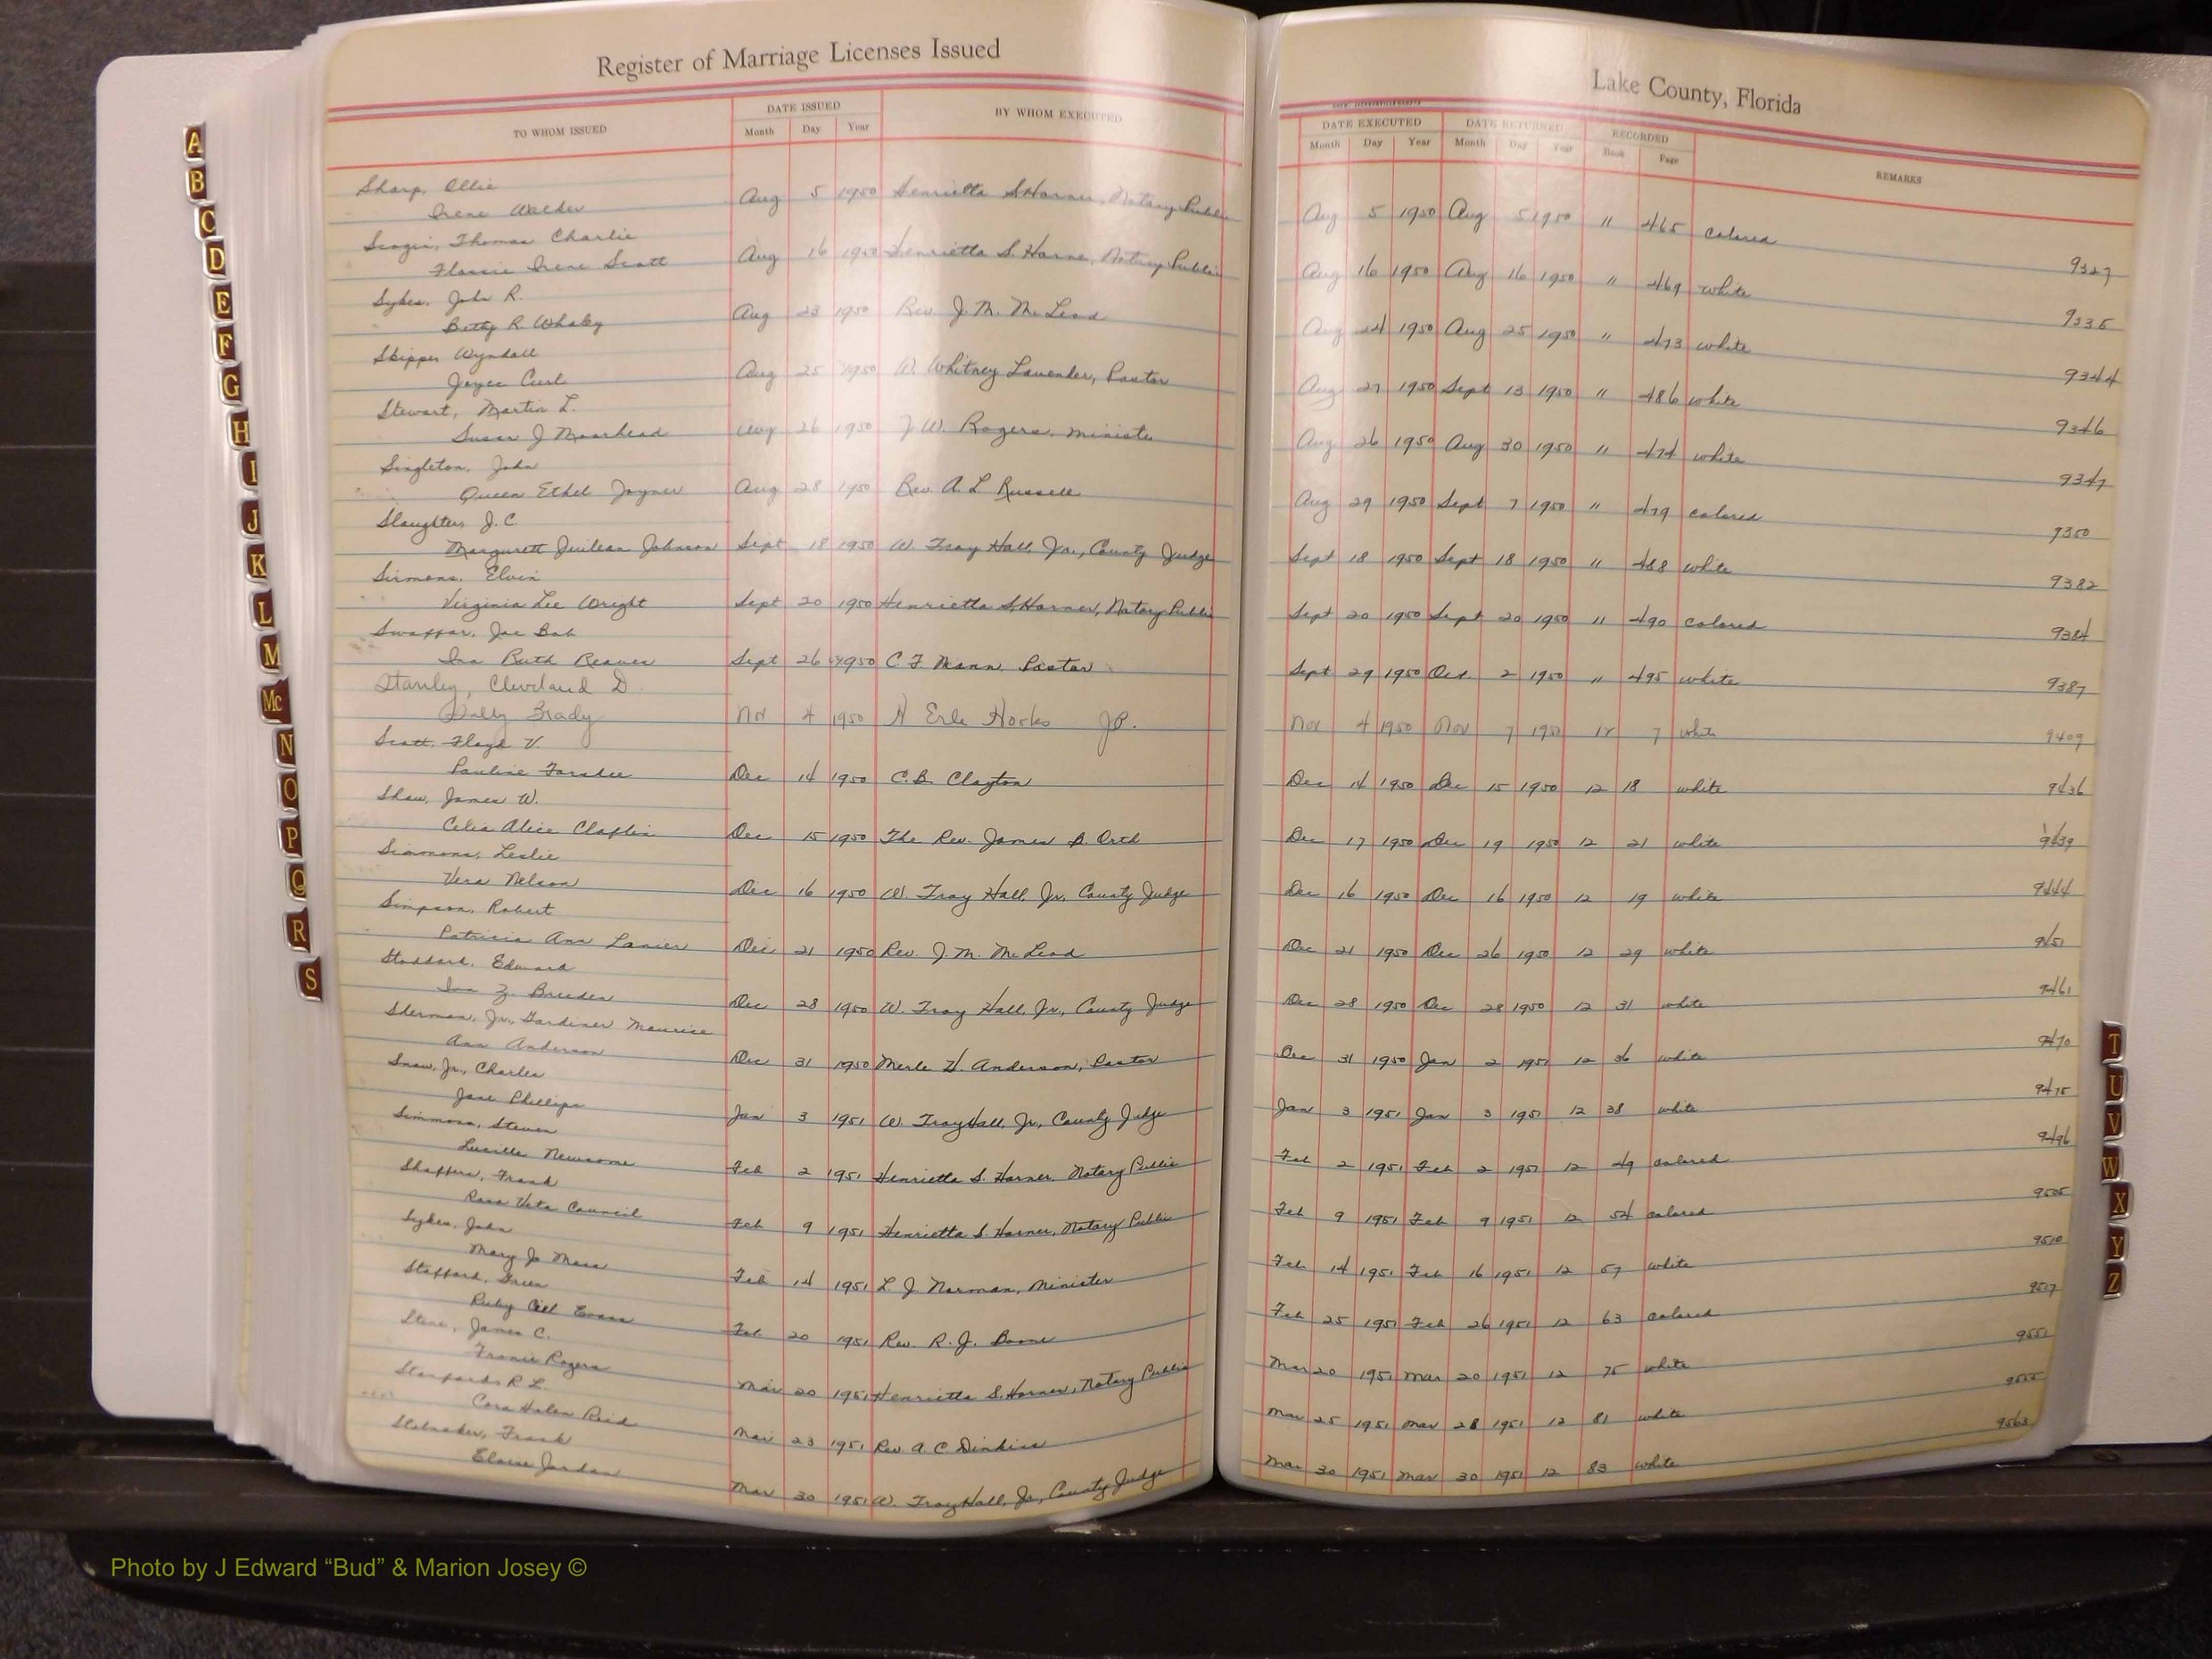 Register of Marriage Licenses Issued
Lake County, Florida
TO WHOM ISSUED
DATE ISSUED
Month Day Year
BY WHOM EXECUTED
DATE EXECUTED
Month Day Year
DATE RETURNED
Month Day Year
RECORDED
Book Page
REMARKS
Sharp, Ollie
Irene Walder Aug 5 1950 Henrietta S. Harner, Notary Public Aug 5 1950 Aug 5 1950 " 465 colored 9327
Thomas Charlie
Flossie Irene Scott Aug 16 1950 Henrietta S. Harner, Notary Public Aug 16 1950 Aug 16 1950 " 469 white 9335
Sykes, John R.
Betty R. Whaley Aug 23 1950 Rev. J. M. McLeod Aug 24 1950 Aug 25 1950 " 473 white 9344
Skipper Wyndall
Joyce Curl Aug 25 1950 W. Whitney Lavender, Pastor Aug 27 1950 Sept 13 1950 " 486 white 9346
Stewart, Martin L.
Susan J Moorhead Aug 26 1950 J. W. Rogers, minister Aug 26 1950 Aug 30 1950 " 474 white 9347
Singleton, John
Queen Ethel Joyner Aug 28 1950 Rev. A. L Russell Aug 29 1950 Sept 7 1950 " 479 colored 9350
Slaughter, J. C.
Margurett Johnson Sept 18 1950 W. Troy Hall, Jr., County Judge Sept 18 1950 Sept 18 1950 " 488 white 9382
Sirmons, Elvin
Virginia Lee Wright Sept 20 1950 Henrietta S. Harner, Notary Public Sept 20 1950 Sept 20 1950 " 490 colored 9384
Swaffar, Joe Bob
Ina Ruth Reaves Sept 26 1950 C. F. Mann, Pastor Sept 29 1950 Oct. 2 1950 " 495 white 9387
Stanley, Cleveland D.
Sally Brady Nov 4 1950 H Erle Hooks JP. Nov 4 1950 Nov 7 1950 12 7 white 9409
Scott, Floyd V.
Pauline Dec 14 1950 C. B. Clayton Dec 14 1950 Dec 15 1950 12 18 white 9436
Shaw, James W.
Celia Alice Claflin Dec 15 1950 The Rev. James B. Orth Dec 17 1950 Dec 19 1950 12 21 white 9439
Simmons, Leslie
Vera Nelson Dec 16 1950 W. Troy Hall, Jr., County Judge Dec 16 1950 Dec 16 1950 12 19 white 9444
Simpson, Robert
Patricia Ann Lanier Dec 21 1950 Rev. J. M. McLeod Dec 21 1950 Dec 26 1950 12 29 white 9451
Stoddard, Edward
Ina Z. Breeden Dec 28 1950 W. Troy Hall, Jr., County Judge Dec 28 1950 Dec 28 1950 12 31 white 9461
Sherman, Jr., Gardiner Maurice
Ann Anderson Dec 31 1950 Merle H. Anderson, Pastor Dec 31 1950 Jan 2 1951 12 36 white 9470
Snow, Jr., Charles
Jane Phillips Jan 3 1951 W. Troy Hall, Jr., County Judge Jan 3 1951 Jan 3 1951 12 38 white 9475
Simmons, Steven
Lucille Newsome Feb 2 1951 Henrietta S. Harner, Notary Public Feb 2 1951 Feb 2 1951 12 49 colored 9496
Shaffers, Frank
Rosa Veta Council Feb 9 1951 Henrietta S. Harner, Notary Public Feb 9 1951 Feb 9 1951 12 54 colored 9505
Sykes, John
Mary Jo Mass Feb 14 1951 L. J. Norman, Minister Feb 14 1951 Feb 16 1951 12 57 white 9510
Stafford, Green
Ruby Evans Feb 20 1951 Rev. R. J. Boone Feb 25 1951 Feb 26 1951 12 63 colored 9517
James C.
Rogers Mar 20 1951 Henrietta S. Harner, Notary Public Mar 20 1951 Mar 20 1951 12 75 white 9551
R L.
Cora Helen Reid Mar 23 1951 Rev A. C. Dinkins Mar 25 1951 Mar 28 1951 12 81 white 9555
Stalnaker, Frank
Eloise Jordan Mar 30 1951 W. Troy Hall, Jr., County Judge Mar 30 1951 Mar 30 1951 12 83 white 9563
A
B
C
D
E
F
G
H
I
J
K
L
M
Mc
N
O
P
Q
R
S
T
U
V
W
X
Y
Z
Photo by J Edward “Bud” & Marion Josey ©